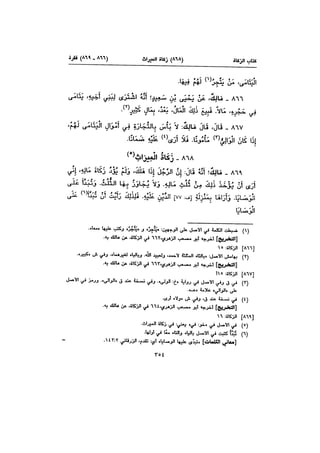 كتاب الزكاة (٨٦٨) زكاة الميراث (٨٦٦ - ٨٦٩) فقرة
الْيَتَامَى، مَنْ يَتَّجِرُ(١) لَهُمْ فِيهَا.
٨٦٦ - مَالِكٌ، عَنْ يَحْيَى بْنِ سَعِيدٍ؛ أَنَّهُ اشْتَرَى لِبَنِي أَخِيهِ، يَتَامَى
فِي حَجْرِهِ، مَالاً. فَبِيعَ ذَلِكَ الْمَالُ، بَعْدُ، بِمَالٍ كَثِيرٍ(٢).
٨٦٧ - قَالَ، قَالَ مَالِكٌ: لاَ بَأْسَ بِالتِّجَارَةِ فِي أَمْوَالِ الْيَتَامَى لَهُمْ،
إِذَا كَانَ الْوَالِي(٣) مَأْمُونًا. فَلاَ أَرَى(٤) عَلَيْهِ ضَمَانًا.
٨٦٨ - زَكَاةُ الْمِيرَاثِ(٥)
٨٦٩ - مَالِكٌ؛ أَنَّهُ قَالَ: إِنَّ الرَّجُلَ إِذَا هَلَكَ، وَلَمْ يُؤَدِّ زَكَاةَ مَالِهِ، إِنِّي
أَرَى أَنْ يُؤْخَذَ ذَلِكَ مِنْ ثُلُثِ مَالِهِ. وَلاَ يُجَاوَزُ بِهَا الثُّلُثُ. وَتُبَدَّأُ عَلَى
الْوَصَايَا. وَأَرَاهَا بِمَنْزِلَةِ [ف: ٧٧] الدَّيْنِ عَلَيْهِ. فَلِذَلِكَ رَأَيْتُ أَنْ تُبَدَّأَ(٦) عَلَى
الْوَصَايَا
(١) ضبطت الكلمة في الأصل على الوجهين: وكتب عليها معا.
[التخريج] أخرجه أبو مصعب الزهري، ٦٦٢ في الزكاة، عن مالك به.
[٨٦٦] الزكاة: ١٥
(٢) بهامش الأصل:
[التخريج] أخرجه أبو مصعب الزهري، ٦٦٣ في الزكاة، عن مالك به.
[٨٦٧] الزكاة: ١٥أ
(٣) في ق وفي الأصل في رواية ع: الولي، وفي نسخة عند ق بالوالي، ورمز في الأصل
على بالوالي علامة
(٤) في نسخة عند ق، وفي ش
[التخريج] أخرجه أبو مصعب الزهري، ٦٦٤ في الزكاة، عن مالك به.
[٨٦٩] الزكاة: ١٦
(٥) في الأصل في يعني: في زكاة الميراث.
(٦) تُبَدَّأَ كتبت في الأصل بالياء والتاء معًا في أولها.
[معاني الكلمات] تبدى عليها الوصايا أي: تقدم، الزرقاني ١٤٣:٢.
٣٥٤